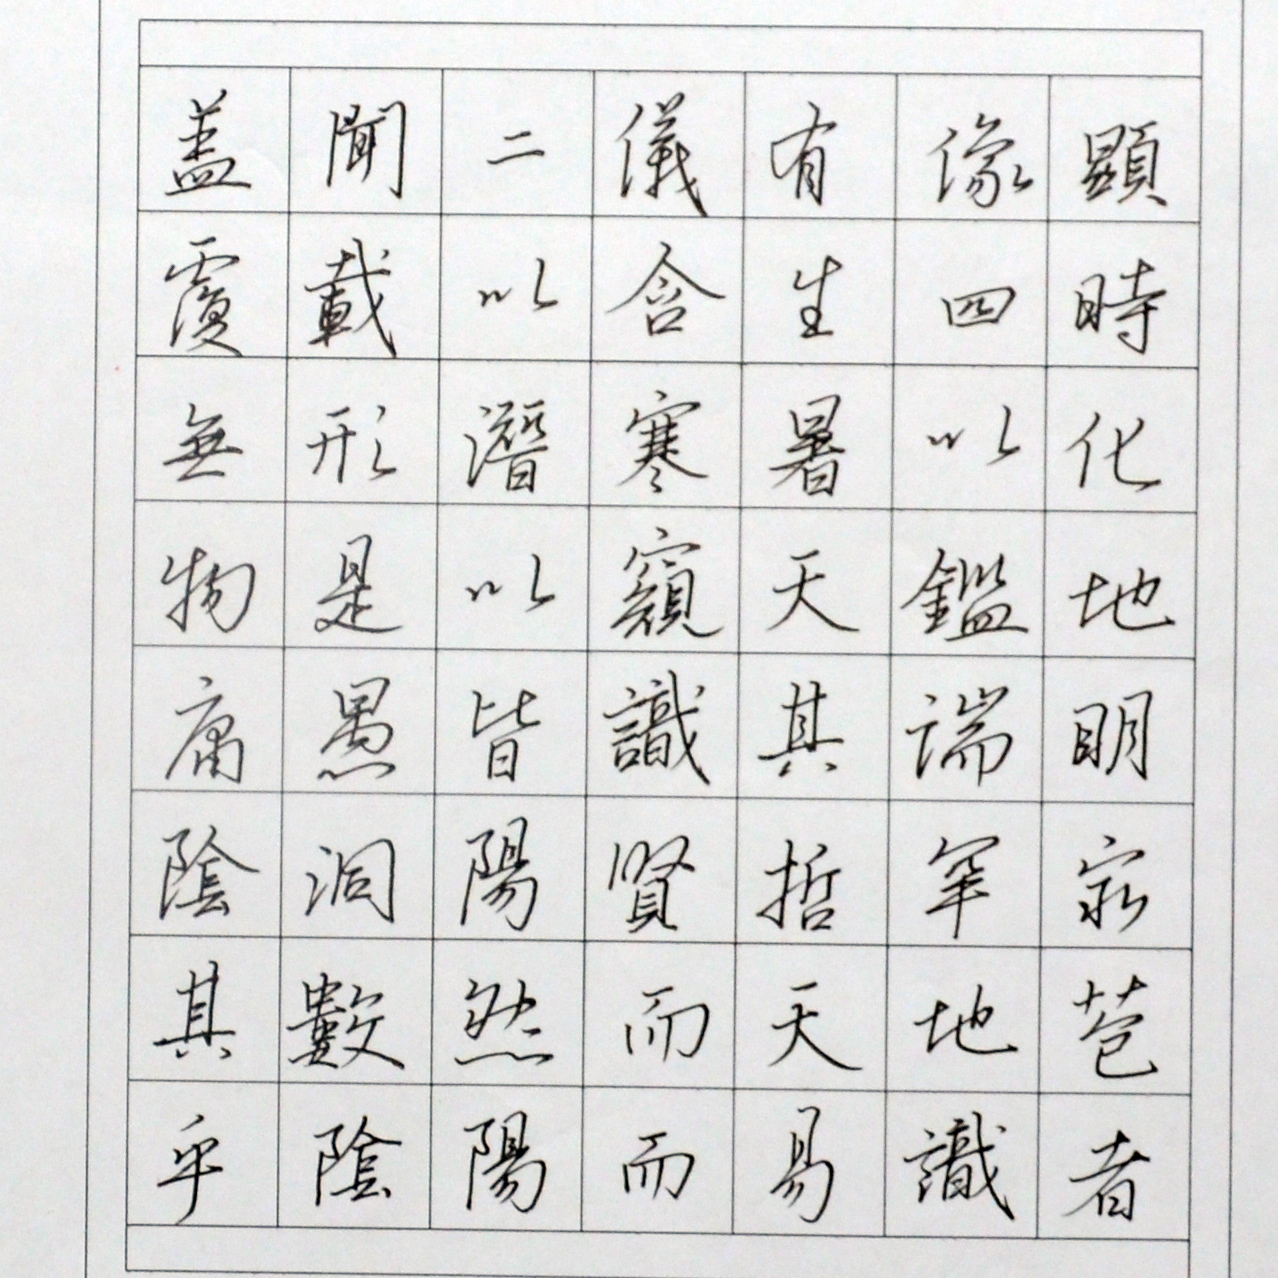 盖聞二儀有像顯
覆載以含生四時
無形潛寒暑以化
物是以窺天鑑地
庸愚皆識其端明
陰洞陽賢哲罕窮
其數然而天地苞
乎陰陽而易識者